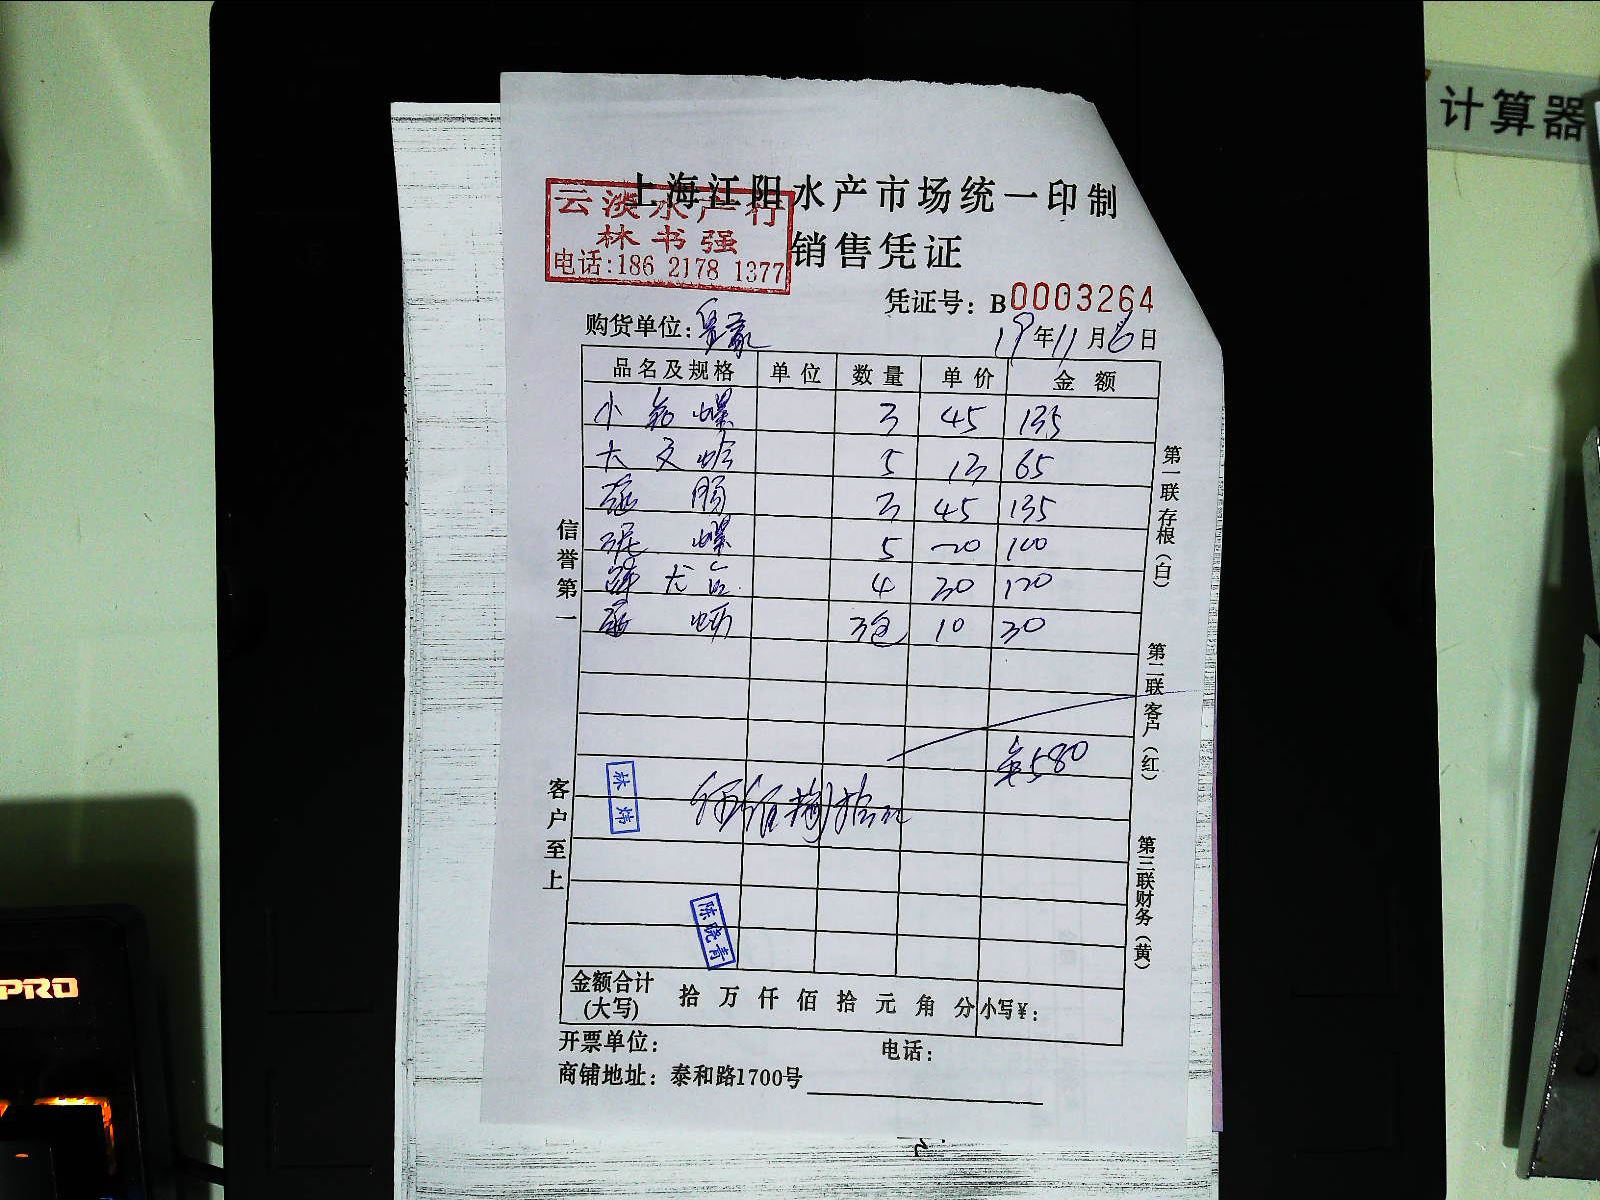 计算器
上海江阳水产市场统一印制
云淡水产行
林书强
电话:186 2178 1377
销售凭证
凭证号: B0003264
购货单位:
19年11月6日
品名及规格 单位 数量 单价 金额
小 螺 3 45 135
大文蛤 5 13 65
肠 3 45 135
泥螺 5 20 100
4 30 120
蛎 3包 10 30
580
伍佰捌拾元
林炜
陈晓青
信誉第一
客户至上
第一联存根(白)
第二联客户(红)
第三联财务(黄)
金额合计
(大写) 拾 万 仟 佰 拾 元 角 分 小写¥:
开票单位: 电话:
商铺地址: 泰和路1700号
PRO